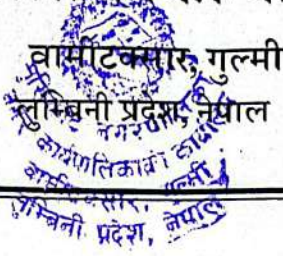 वामीटक्सार, गुल्मी
लुम्बिनी प्रदेश, नेपाल
नगर
कार्यपालिकाको
वामीटक्सार, गुल्मी
लुम्बिनी प्रदेश, नेपाल